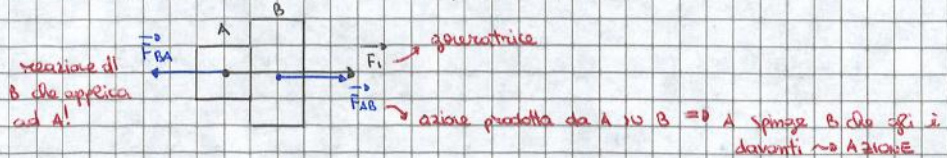 B
A
F₁ → generatrice
F_BA
reazione di
B che applica
ad A!
F_AB
azione prodotta da A su B ⇒ A spinge B che gli è
davanti ~> AZIONE